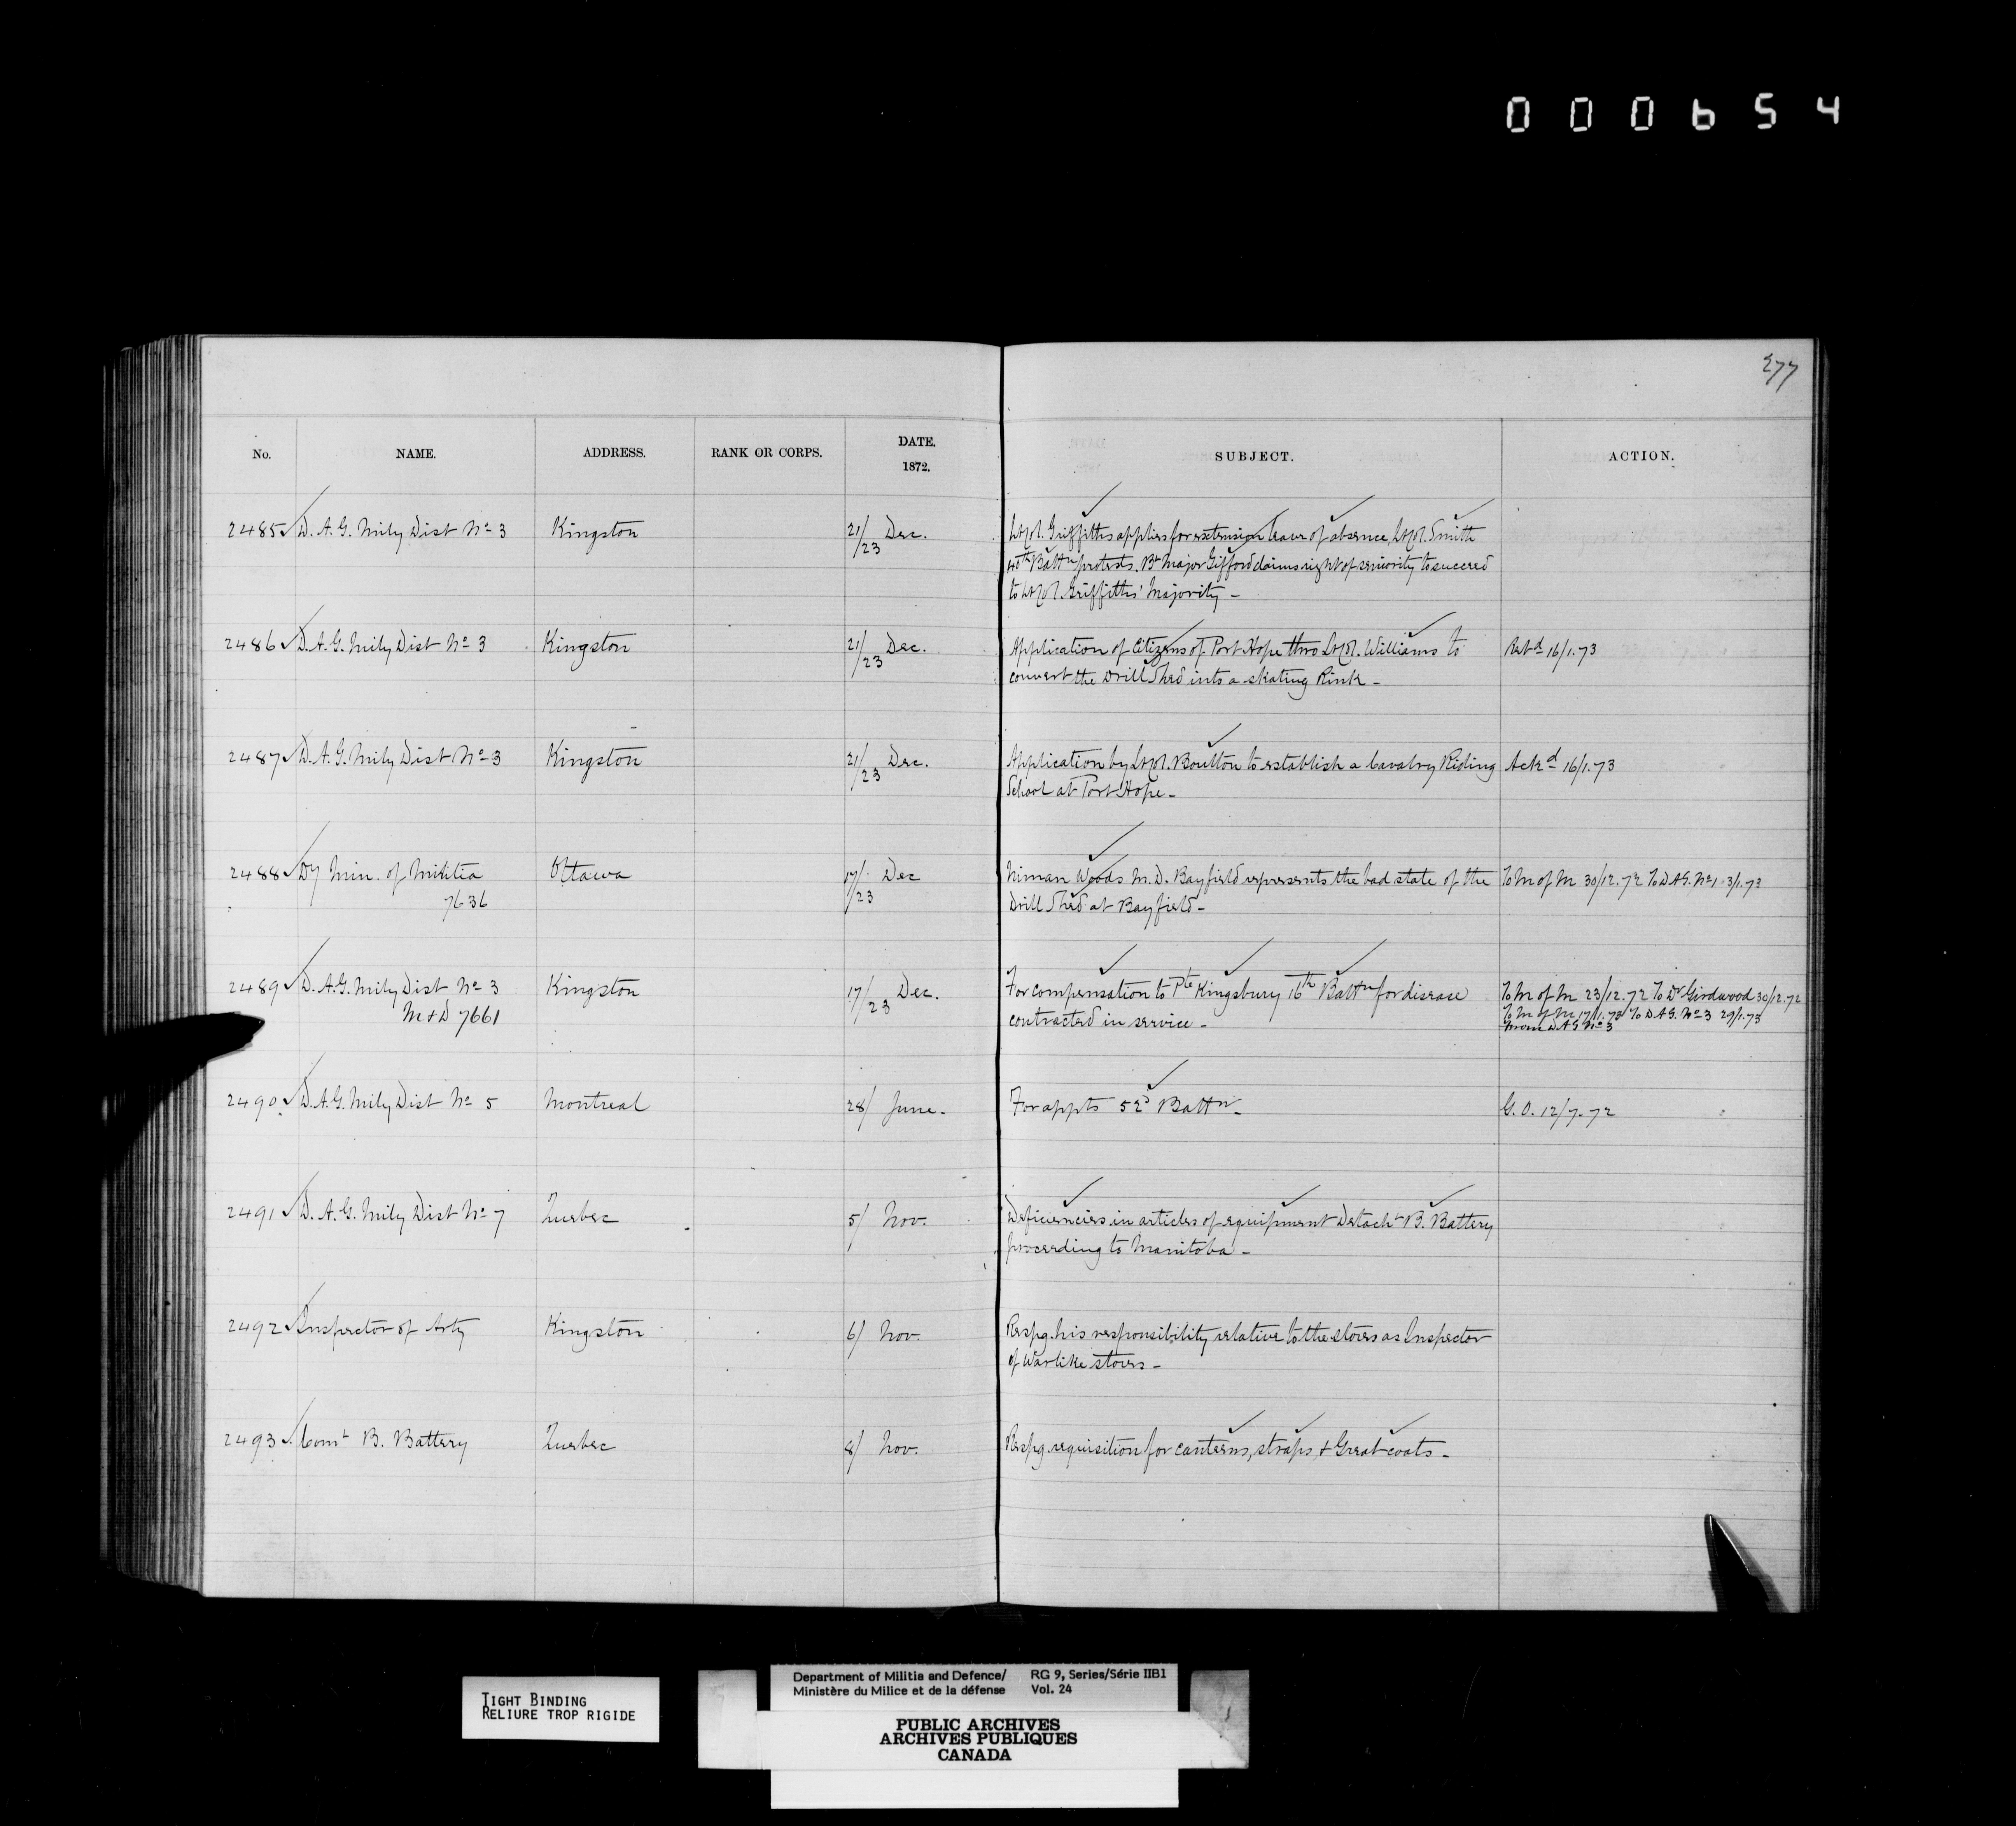 000654
277
No. NAME. ADDRESS. RANK OR CORPS. DATE. 1872. SUBJECT. ACTION.
2485 D. A. G. Mily Dist No 3 Kingston 21/23 Dec. Lt Col. Griffiths applies for extension leave of absence, Lt Col. Smith
40th Battn protests. Bt Major Gifford claims right of seniority to succeed
to Lt Col. Griffiths' Majority -
2486 D. A. G. Mily Dist No 3 Kingston 21/23 Dec. Application of Citizens of Port Hope thro Lt Col. Williams to 16/1.73
convert the Drill Shed into a skating Rink -
2487 D. A. G. Mily Dist No 3 Kingston 21/23 Dec. Application by Lt Col. Boulton to establish a Cavalry Riding Ackd 16/1.73
School at Port Hope -
2488 Dy Min. of Militia Ottawa 17/23 Dec Woods M. D. Bayfield represents the bad state of the To M of M 30/12.72 To D A G. No 1 3/1.73
7636 Drill Shed at Bayfield -
2489 D. A. G. Mily Dist No 3 Kingston 17/23 Dec. For compensation to Pte Kingsbury 16th Battn for disease To M of M 23/12.72 To Dr Girdwood 30/12.72
M & D 7661 contracted in service - To M of M 17/1.73 To D A G. No 3 29/1.73
From D A G No 3
2490 D. A. G. Mily Dist No 5 Montreal 28/ June. For appts 52d Battn - G. O. 12/7.72
2491 D. A. G. Mily Dist No 7 Quebec 5/ Nov. Deficiencies in articles of equipment Detacht B. Battery
proceeding to Manitoba -
2492 Inspector of Arty Kingston 6/ Nov. Respg. his responsibility relative to the stores as Inspector
of Warlike stores -
2493 Comt B. Battery Quebec 8/ Nov. Respg. requisition for canteens, straps, & Great coats -
TIGHT BINDING
RELIURE TROP RIGIDE
Department of Militia and Defence/ RG 9, Series/Série IIB1
Ministère du Milice et de la défense Vol. 24
PUBLIC ARCHIVES
ARCHIVES PUBLIQUES
CANADA